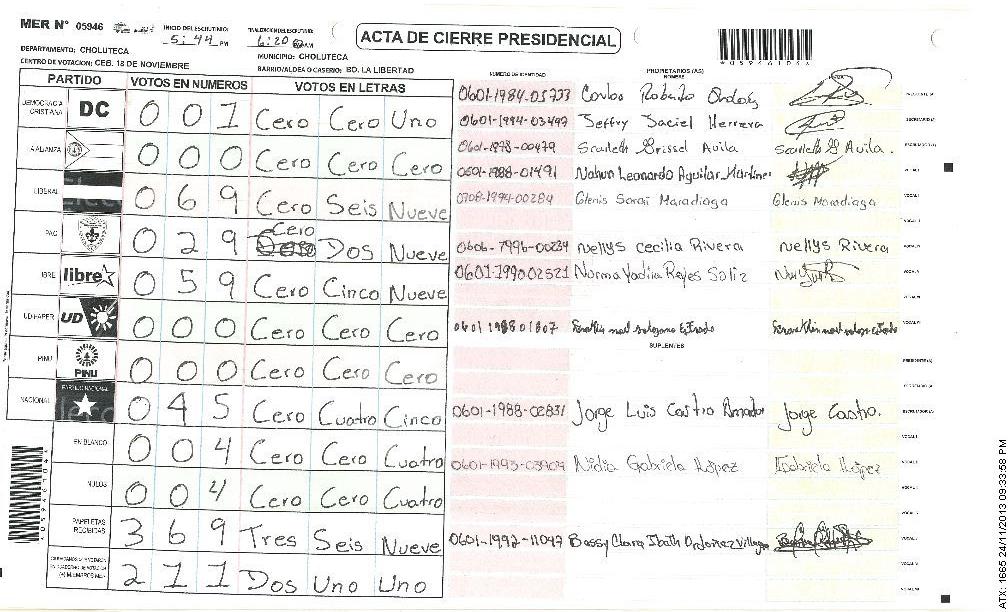 MER N° 05946 INICIO DEL ESCRUTINIO: 5:44 PM FINALIZACION DEL ESCRUTINIO: 6:20 AM
ACTA DE CIERRE PRESIDENCIAL
*0594610*
DEPARTAMENTO: CHOLUTECA MUNICIPIO: CHOLUTECA
CENTRO DE VOTACION: CEB. 18 DE NOVIEMBRE BARRIO/ALDEA O CASERIO: BO. LA LIBERTAD
PARTIDO VOTOS EN NUMEROS VOTOS EN LETRAS
NUMERO DE IDENTIDAD PROPIETARIOS (AS) NOMBRE
DEMOCRACIA CRISTIANA DC 0 0 1 Cero Cero Uno
ALIANZA 0 0 0 Cero Cero Cero
LIBERAL 0 6 9 Cero Seis Nueve
PAC 0 2 9 Cero Dos Nueve
LIBRE libre 0 5 9 Cero Cinco Nueve
UD-FAPER UD 0 0 0 Cero Cero Cero
PINU PINU 0 0 0 Cero Cero Cero
NACIONAL PARTIDO NACIONAL 0 4 5 Cero Cuatro Cinco
EN BLANCO 0 0 4 Cero Cero Cuatro
NULOS 0 0 4 Cero Cero Cuatro
PAPELETAS RECIBIDAS 3 6 9 Tres Seis Nueve
2 1 1 Dos Uno Uno
0601-1984-03733 Carlos Roberto Ordoñez PRESIDENTE(A)
0601-1994-03497 Jeffry Jaciel Herrera SECRETARIO(A)
0601-1978-00479 Scarleth Grissel Avila Scarleth G Avila. ESCRUTADOR(A)
0501-1988-01491 Nahun Leonardo Aguilar Martinez VOCAL I
0708-1994-00284 Glenis Sarai Maradiaga Glenis Maradiaga
0606-1996-00234 Nellys Cecilia Rivera Nellys Rivera
0601-199002521 Norma Yadira Reyes Soliz
0601 198801807
SUPLENTES
PRESIDENTE(A)
SECRETARIO(A)
0601-1988-02831 Jorge Luis Castro Amador Jorge Castro. ESCRUTADOR(A)
VOCAL I
0601-1993-03909 Nidia Gabriela López Gabriela López
0601-1992-11047 Bessy Clara Ordoñez
ATX: 1665 24/11/2013 09:33:58 PM